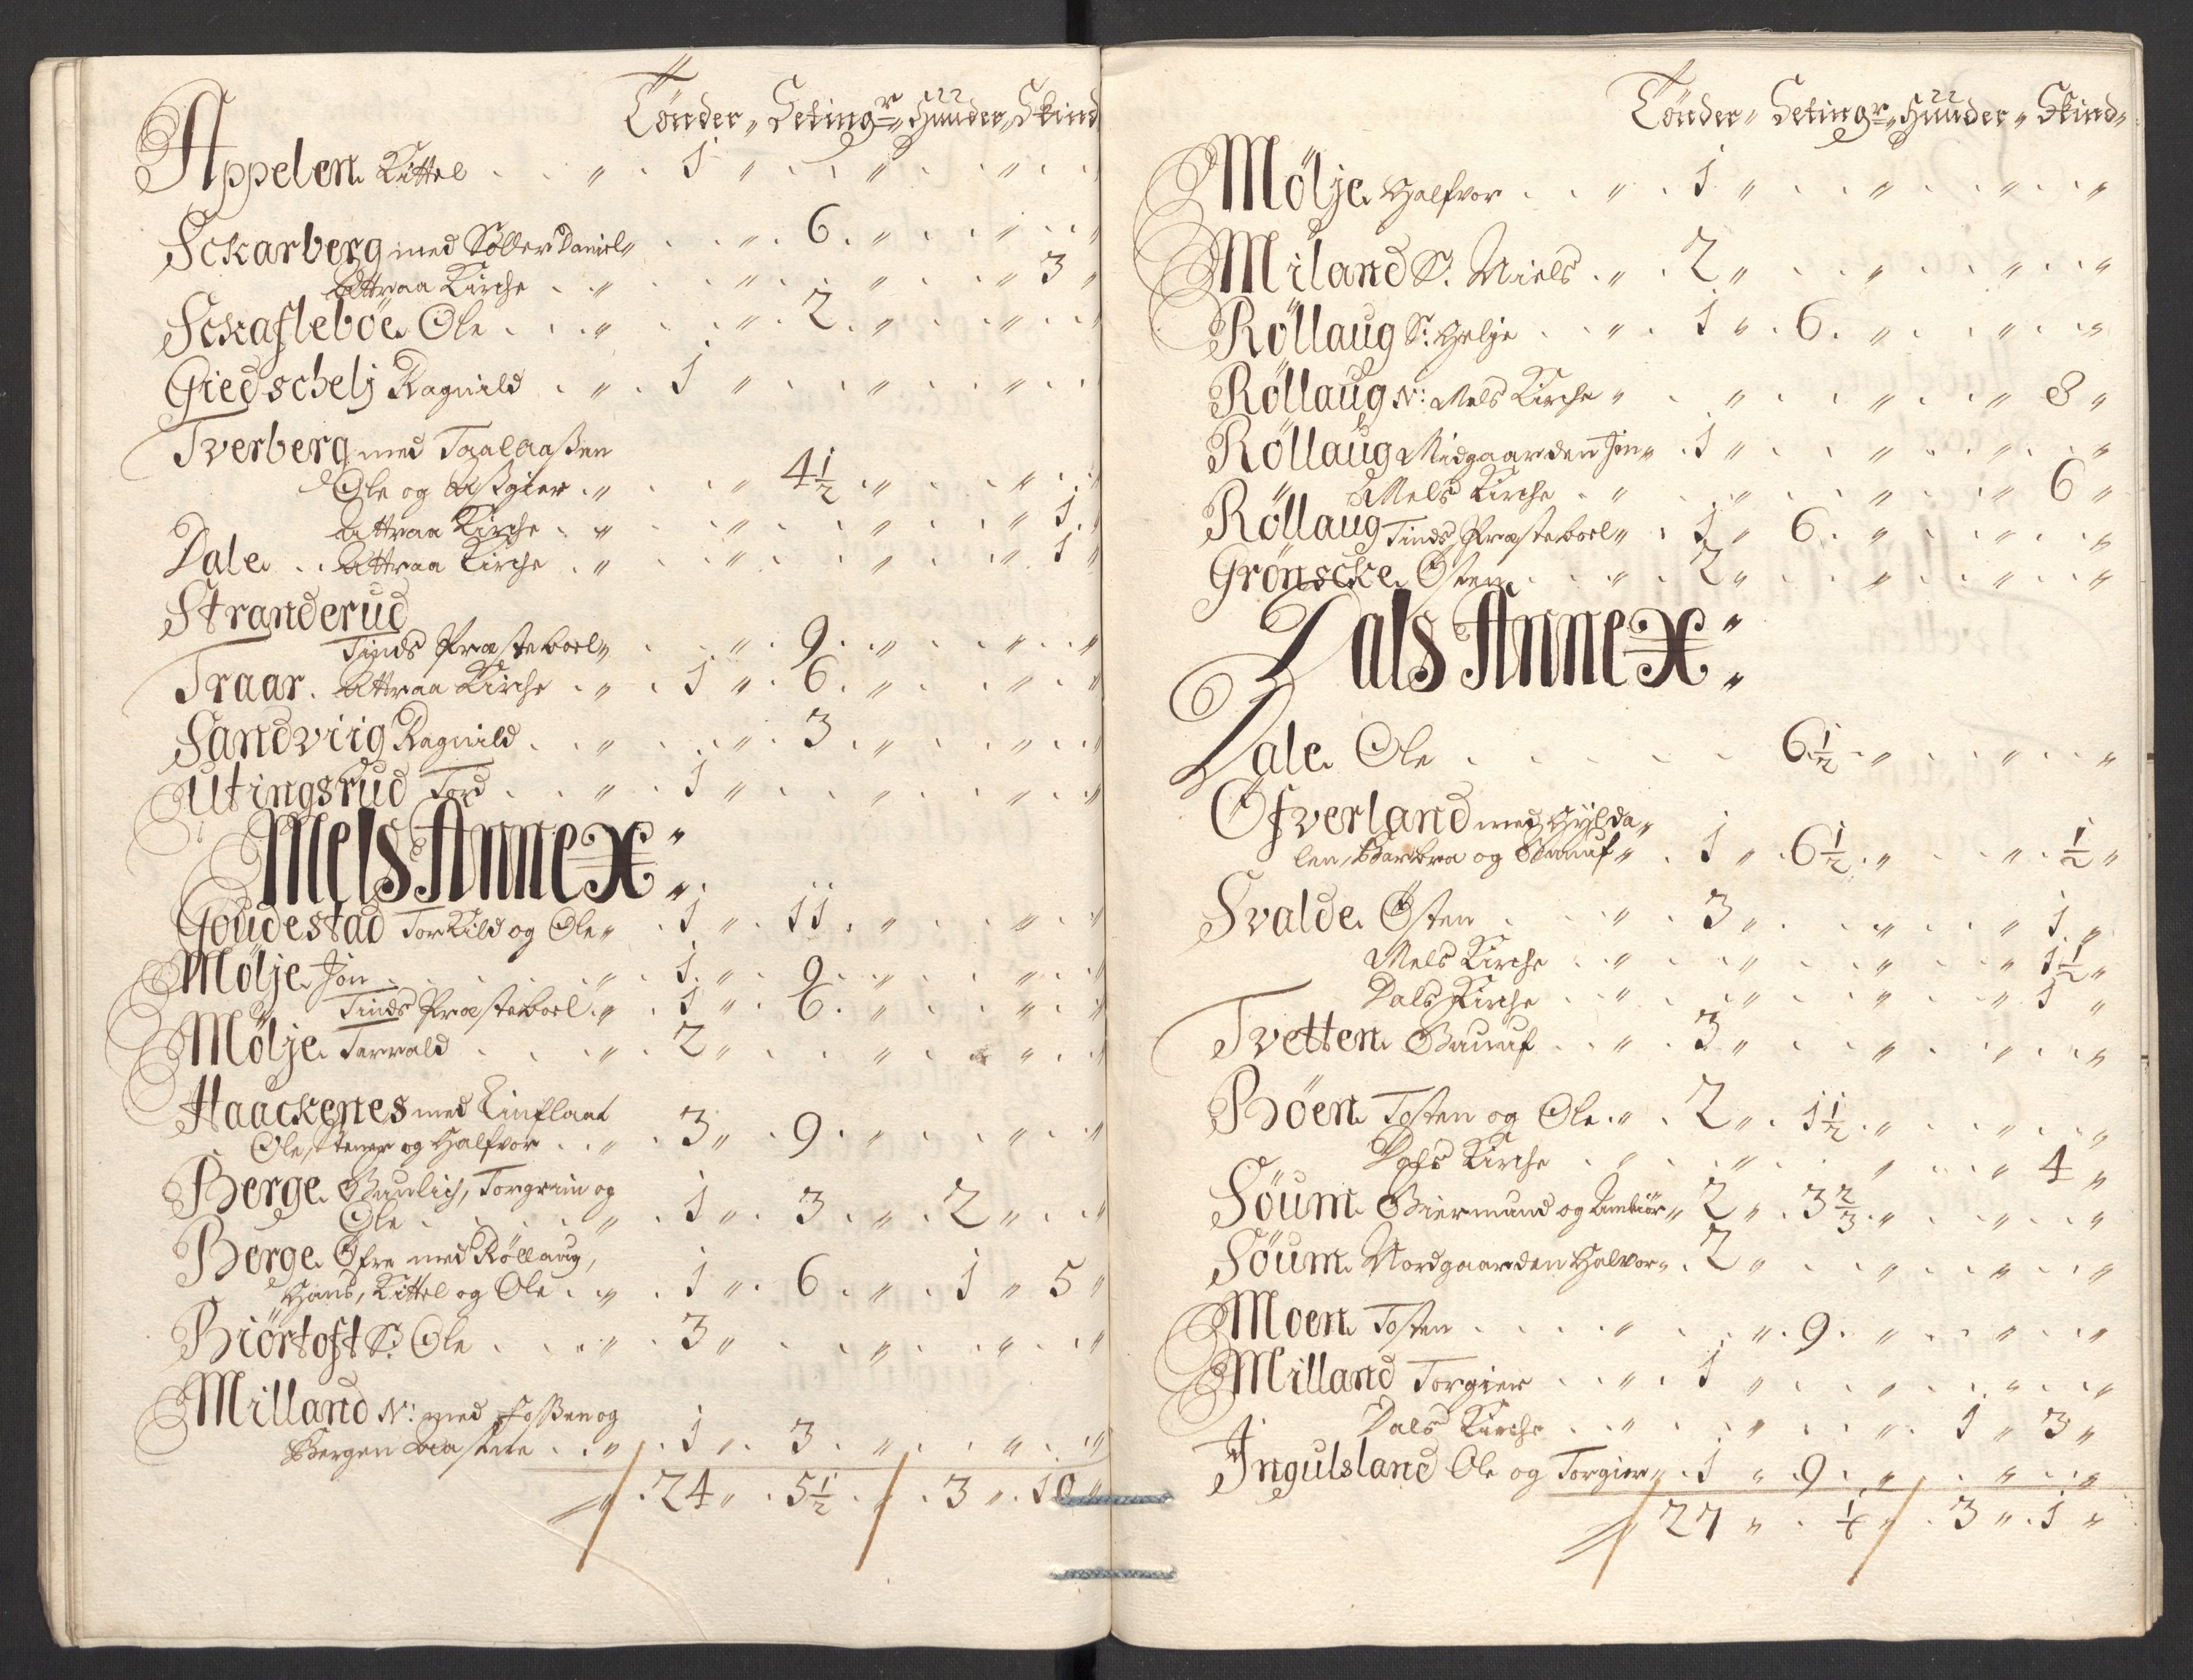 Tönder „ Setingr „ Huuder „ Skind
Appelen Kittel . . „ . 1 „ . . „ . . „ . .
Sckarberg med Söller Daniel „ . . „ . 6 . „ . . „ . . „
Attraa Kirche . . „ . . „ . . „ . . „ 3 „
Sckafleböe Ole . . . „ . . „ . 2 . „ . . „ . . „
Giedschelj Ragnild . . „ . 1 „ . . „ . . „ . .
Tverberg med Taalaaßen
Ole og Aßgier . „ . . „ 4 1/2 . „ . . „ . . „
Attraa Kirche . „ . . „ . . „ . . „ 1 . „
Dale . . Attraa Kirche . „ . . „ . . „ . . „ 1 „
Stranderud
Tinds Præsteboel „ . . „ . 9 . „ . . „ . . „
Traar . Attraa Kirche . „ . 1 „ . 6 . „ . . „ . . „
Sandviig Ragnild . . „ . . „ . 3 . „ . . „ . . „
Utingsrud Tord . . „ . 1 „ . . „ . . „ . . „
Mels Annex „
Goudestad Torkild og Ole „ . 1 „ . 11 . „ . . „ . . „
Mölje Jon . . . . „ . 1 . „ . 9 . „ . . „ . . „
Tinds Præsteboel . „ . 1 „ . 6 . „ . . „ . . „
Mölje Tarvald . . . „ . 2 „ . . „ . . „ . . „
Haackenes med Einflaat
Ole, Stener og Halfvor . . „ . 3 „ . 9 . „ . . „ . . „
Berge Gunlich, Torgrim og
Ole . . . . „ . 1 „ . 3 . „ . 2 „ . . „
Berge Öfre med Röllaug,
Hans, Kittel og Ole . „ . 1 „ . 6 . „ . 1 „ 5 „
Biörtoft S. Ole . . . „ . 3 „ . . „ . . „ . . „
Milland N: med Foßen og
Bergen Aaste . . „ . 1 „ . 3 . „ . . „ . . „
„ . 24 „ . 5 1/2 . „ . 3 „ . 10 „
Tönder „ Setingr „ Huuder „ Skind „
Mölje Halfvor . . „ . 1 „ . . „ . . „ . . „
Miland S. Niels . „ . 2 „ . . „ . . „ . . „
Röllaug S: Helje . . „ . 1 „ . 6 . „ . . „ . . „
Röllaug N: Mels Kirche „ . . „ . . „ . . „ 8 „
Röllaug Midgaarden Jon „ . 1 „ . . „ . . „ . . „
Mels Kirche . „ . . „ . . „ . . „ 6 „
Röllaug Tinds Præsteboel „ . 1 „ 6 . „ . . „ . . „
Grönscke Östen . . . „ . 2 „ . . „ . . „ . . „
Dals Annex „
Dale Ole . . . . . . 6 1/2 . „ . . „ . . „
Öfverland med Gylda„
len, Barbra og Gunuf „ . 1 „ . 6 1/2 . „ . . „ . 1/2 „
Svalde Östen . . . „ . 3 „ . . „ . . „ 1 . „
Mels Kirche . . „ . . „ . . „ . . „ 1 1/2 „
Dals Kirche . . „ . . „ . . „ . . „ 1 „
Tvetten Gunuf . . „ . 3 „ . . „ . . „ . . „
Böen Tosten og Ole . „ . 2 „ . 1 1/2 . „ . . „ . . „
Dals Kirche . . „ . . „ . . „ . . „ 4 „
Söum Giermund og Anbiör „ 2 „ . 3 2/3 . „ . . „ . . „
Söum Nordgaarden Halvor „ . 2 „ . . „ . . „ . . „
Moen Tosten . . . . „ . . „ . 9 . „ . . „ . . „
Milland Torgier . . „ . 1 „ . . „ . . „ . . „
Dals Kirche . . „ . . „ . . „ . 1 „ 3 „
Ingulsland Ole og Torgier „ . 1 „ . 9 . „ . . „ . . „
„ 27 „ . 1/6 „ . 3 „ . 1 „